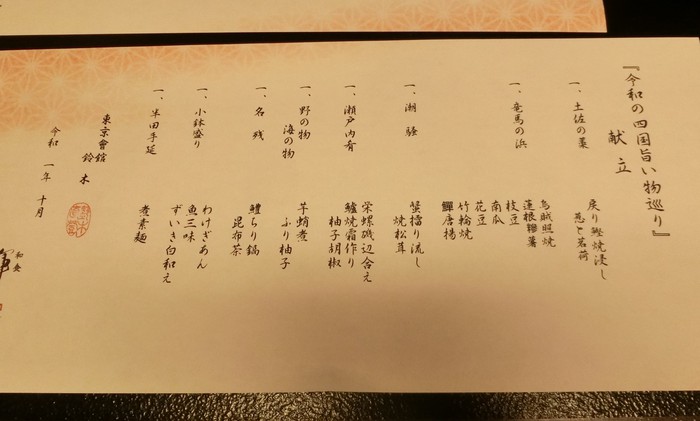 『令和の四国旨い物巡り』
献立
一、土佐の藁
戻り鰹焼浸し
葱と茗荷
一、竜馬の浜
烏賊照焼
蓮根鞠薯
枝豆
南瓜
花豆
竹輪焼
鱓唐揚
一、潮騒
蟹擂り流し
焼松茸
一、瀬戸内肴
栄螺磯辺合え
鱸焼霜作り
柚子胡椒
一、野の物
海の物
芋蛸煮
ふり柚子
一、名残
鱧ちり鍋
昆布茶
一、小鉢盛り
わけぎあん
魚三味
ずいき白和え
一、半田手延
煮素麺
東京會舘
鈴木
令和一年十月
和食